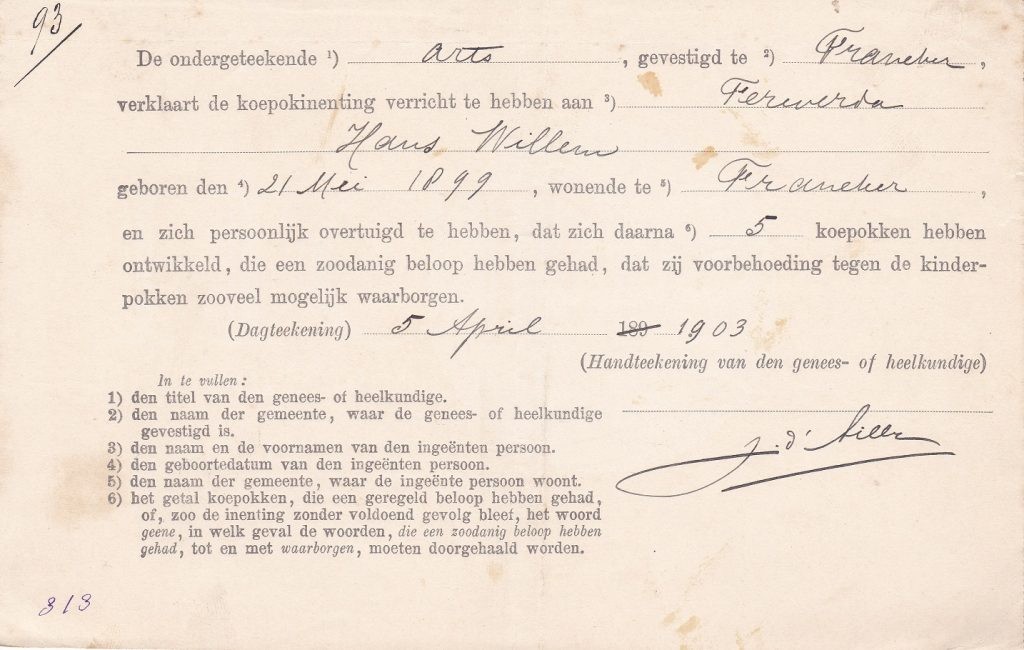 93
De ondergeteekende ¹) arts, gevestigd te ²) Franeker,
verklaart de koepokinenting verricht te hebben aan ³) Ferwerda
Hans Willem
geboren den ⁴) 21 Mei 1899, wonende te ⁵) Franeker,
en zich persoonlijk overtuigd te hebben, dat zich daarna ⁶) 5 koepokken hebben
ontwikkeld, die een zoodanig beloop hebben gehad, dat zij voorbehoeding tegen de kinder-
pokken zooveel mogelijk waarborgen.
(Dagteekening) 5 April 189 1903
(Handteekening van den genees- of heelkundige)
In te vullen:
1) den titel van den genees- of heelkundige.
2) den naam der gemeente, waar de genees- of heelkundige
gevestigd is.
3) den naam en de voornamen van den ingeënten persoon.
4) den geboortedatum van den ingeënten persoon.
5) den naam der gemeente, waar de ingeënte persoon woont.
6) het getal koepokken, die een geregeld beloop hebben gehad,
of, zoo de inenting zonder voldoend gevolg bleef, het woord
geene, in welk geval de woorden, die een zoodanig beloop hebben
gehad, tot en met waarborgen, moeten doorgehaald worden.
J. d'
313